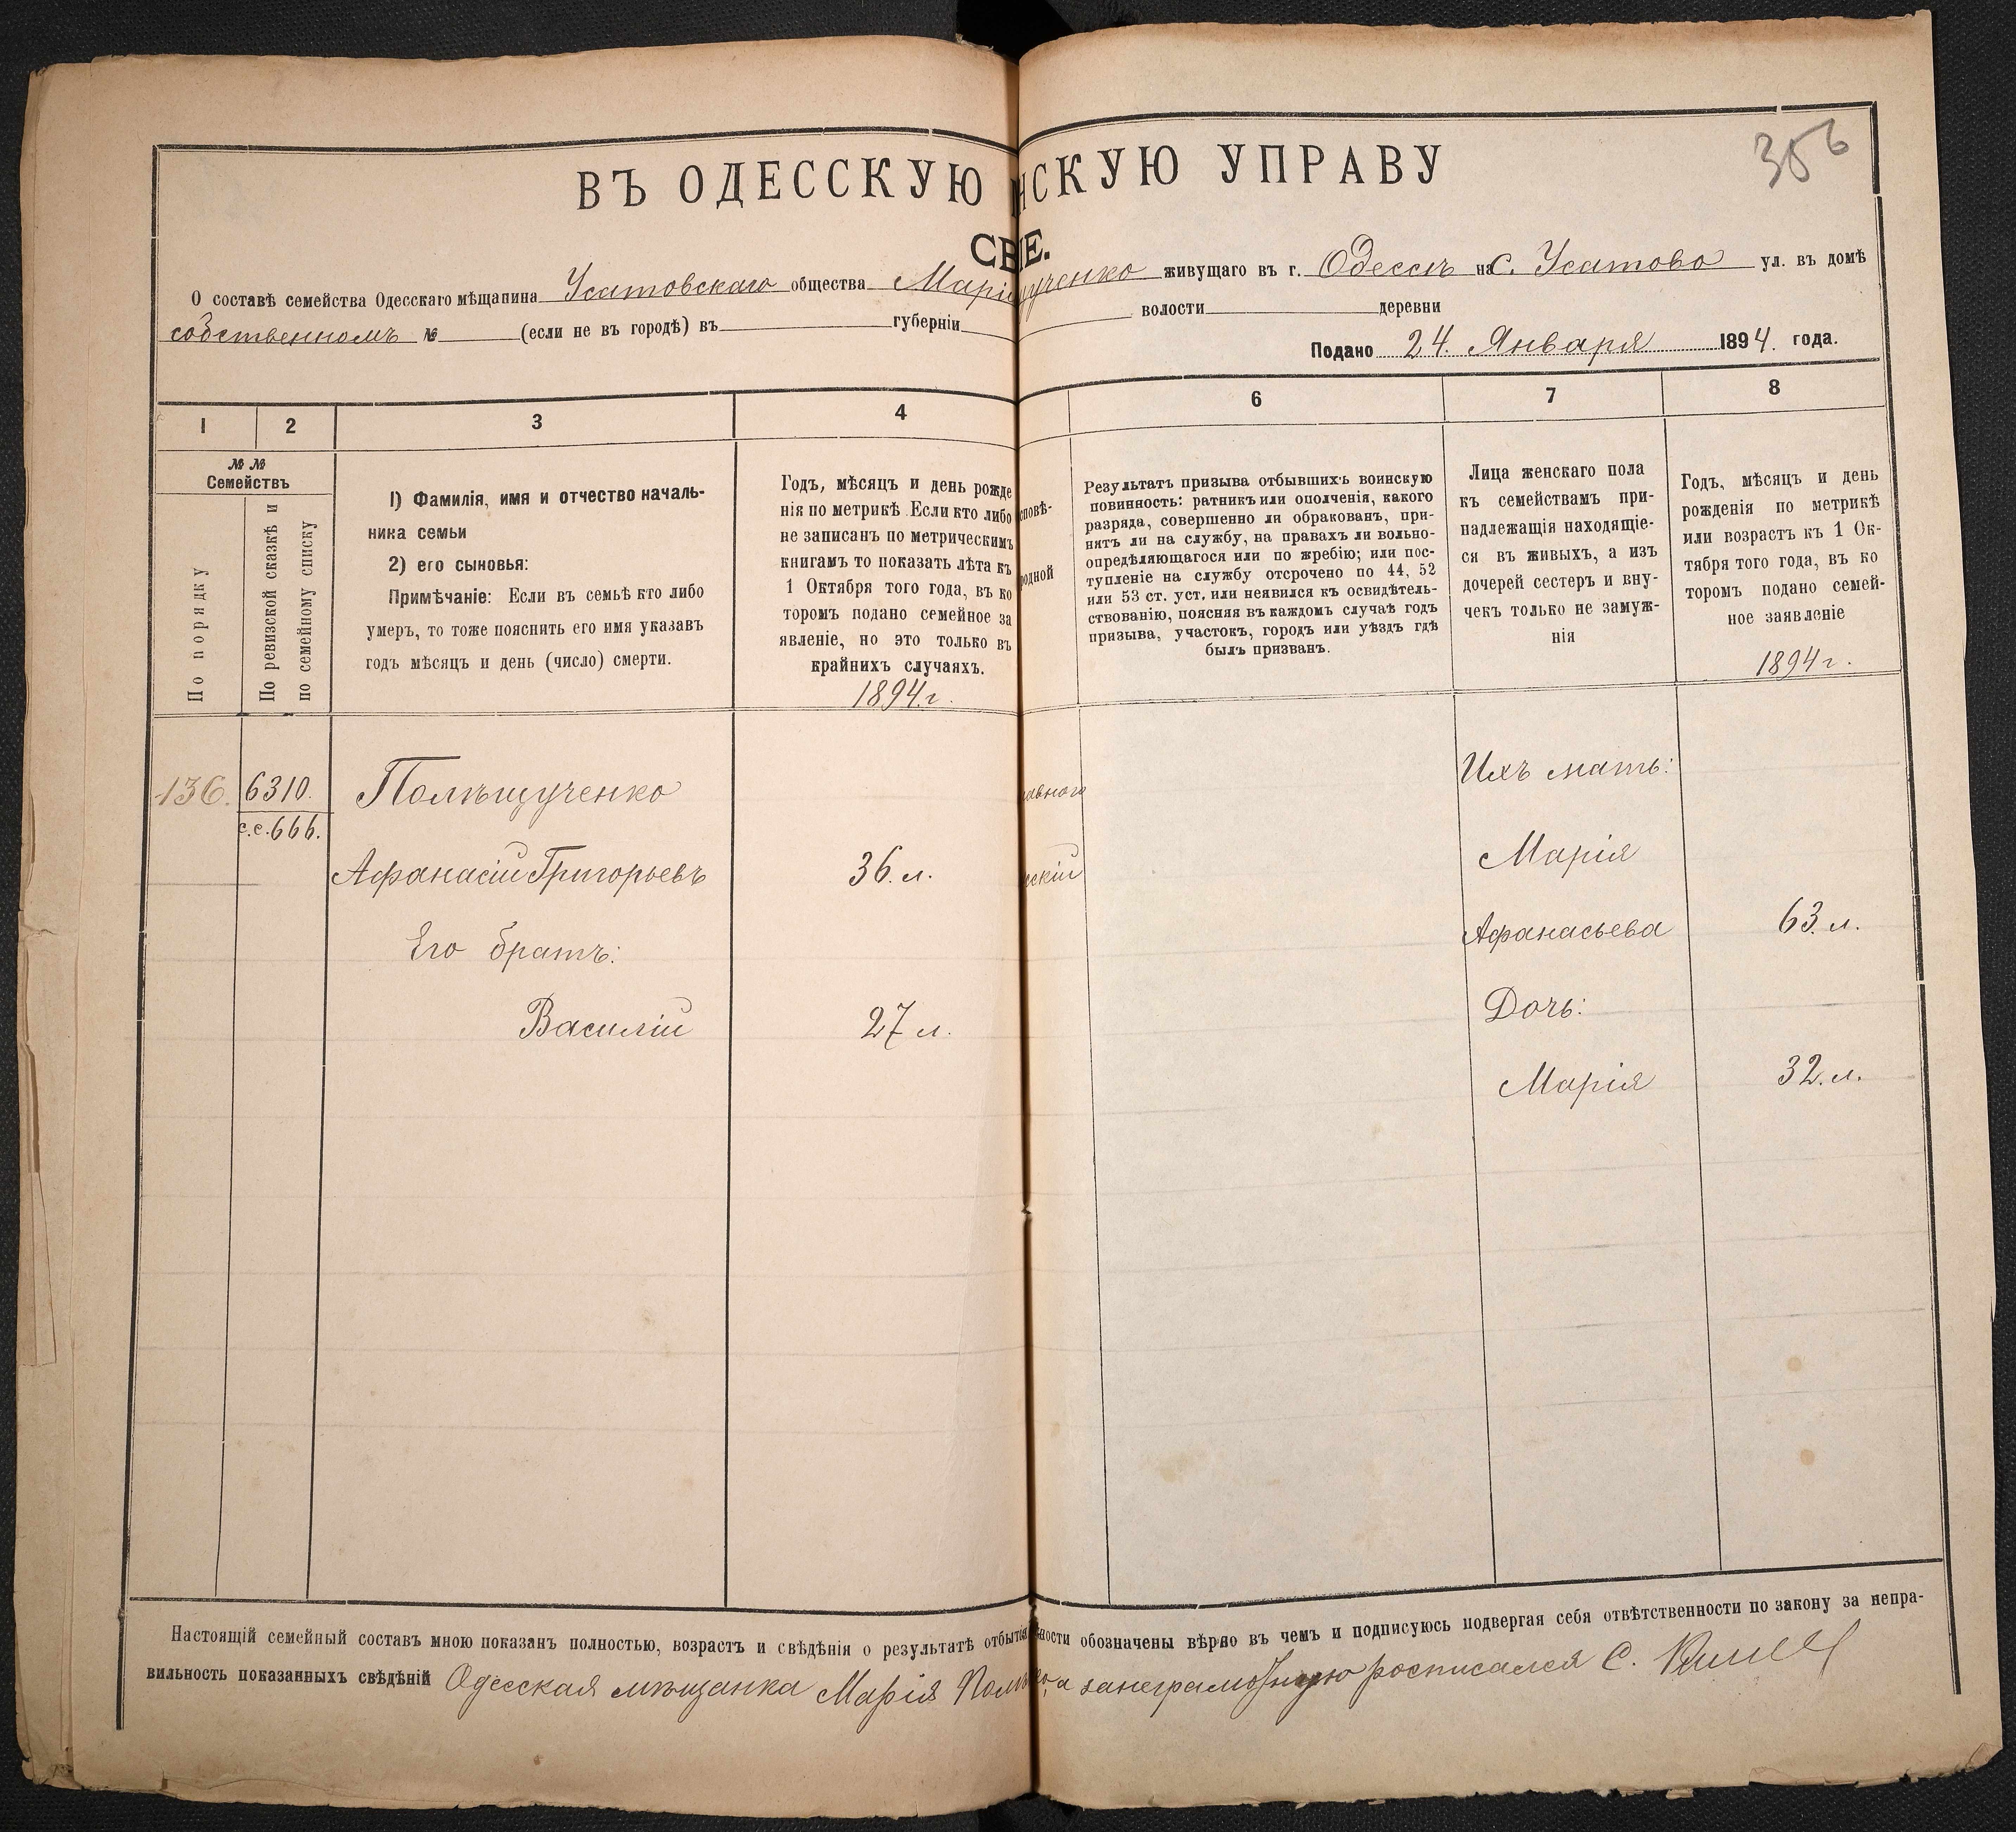 356
ВЪ ОДЕССКУЮ НСКУЮ УПРАВУ
СВ Е.
О составѣ семейства Одесскаго мѣщанина Усатовскаго общества Марі щученко живущаго въ г. Одессѣ на с. Усатово ул. въ домѣ
собственномъ № (если не въ городѣ) въ губерніи волости деревни
Подано 24. Января 1894. года.
1 2 3 4 6 7 8
№ №
Семействъ
По порядку
По ревизской сказкѣ и
по семейному списку
1) Фамилія, имя и отчество началь-
ника семьи
2) его сыновья:
Примѣчаніе: Если въ семьѣ кто либо
умеръ, то тоже пояснить его имя указавъ
годъ мѣсяцъ и день (число) смерти.
Годъ, мѣсяцъ и день рожде
нія по метрикѣ. Если кто либо
не записанъ по метрическимъ
книгамъ то показать лѣта къ
1 Октября того года, въ ко
торомъ подано семейное за
явленіе, но это только въ
крайнихъ случаяхъ.
1894.г.
сповѣ-
родной
Результатъ призыва отбывшихъ воинскую
повинность: ратникъ или ополченія, какого
разряда, совершенно ли обракованъ, при-
нятъ ли на службу, на правахъ ли вольно-
опредѣляющагося или по жребію; или пос-
тупленіе на службу отсрочено по 44, 52
или 53 ст. уст. или неявился къ освидѣтель-
ствованію, поясняя въ каждомъ случаѣ годъ
призыва, участокъ, городъ или уѣздъ гдѣ
былъ призванъ.
Лица женскаго пола
къ семействамъ при-
надлежащія находящіе-
ся въ живыхъ, а изъ
дочерей сестеръ и вну-
чекъ только не замуж-
нія
Годъ, мѣсяцъ и день
рожденія по метрикѣ
или возрастъ къ 1 Ок-
тября того года, въ ко
торомъ подано семей-
ное заявленіе
1894 г.
136. 6310. Полѣщученко авного Ихъ мать:
с.с. 666.
Афанасій Григорьевъ 36. л. скій Марія
Его братъ: Афанасьева 63. л.
Василій 27 л. Дочь:
Марія 32. л.
Настоящій семейный составъ мною показанъ полностью, возрастъ и свѣдѣнія о результатѣ отбытія ности обозначены вѣрно въ чемъ и подписуюсь подвергая себя отвѣтственности по закону за непра-
вильность показанныхъ свѣдѣній Одесская мѣщанка Марія Полѣ а занеграмотную росписался С.